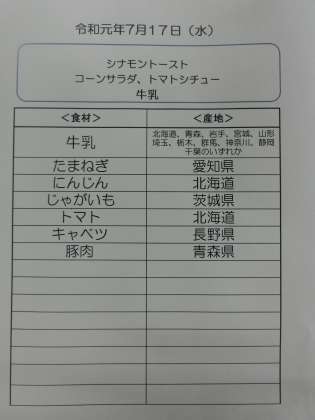 令和元年7月17日（水）
シナモントースト
コーンサラダ、トマトシチュー
牛乳
＜食材＞ ＜産地＞
牛乳 北海道、青森、岩手、宮城、山形
埼玉、栃木、群馬、神奈川、静岡
千葉のいずれか
たまねぎ 愛知県
にんじん 北海道
じゃがいも 茨城県
トマト 北海道
キャベツ 長野県
豚肉 青森県